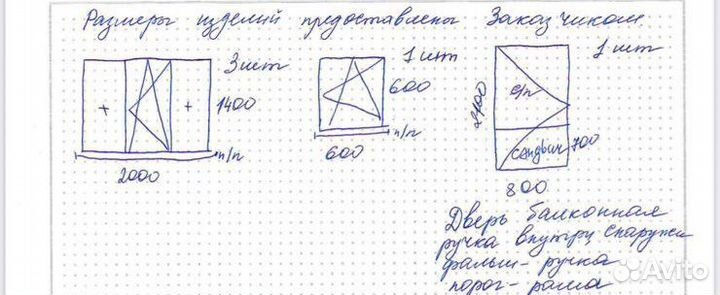 Размеры изделий предоставлены Заказчиком
3шт
1400
+
+
п/п
2000
1шт
600
п/п
600
1шт
2100
с/п
сэндвич 700
800
Дверь балконная
ручка внутри снаружи
фальш-ручка
порог-рама
Avito